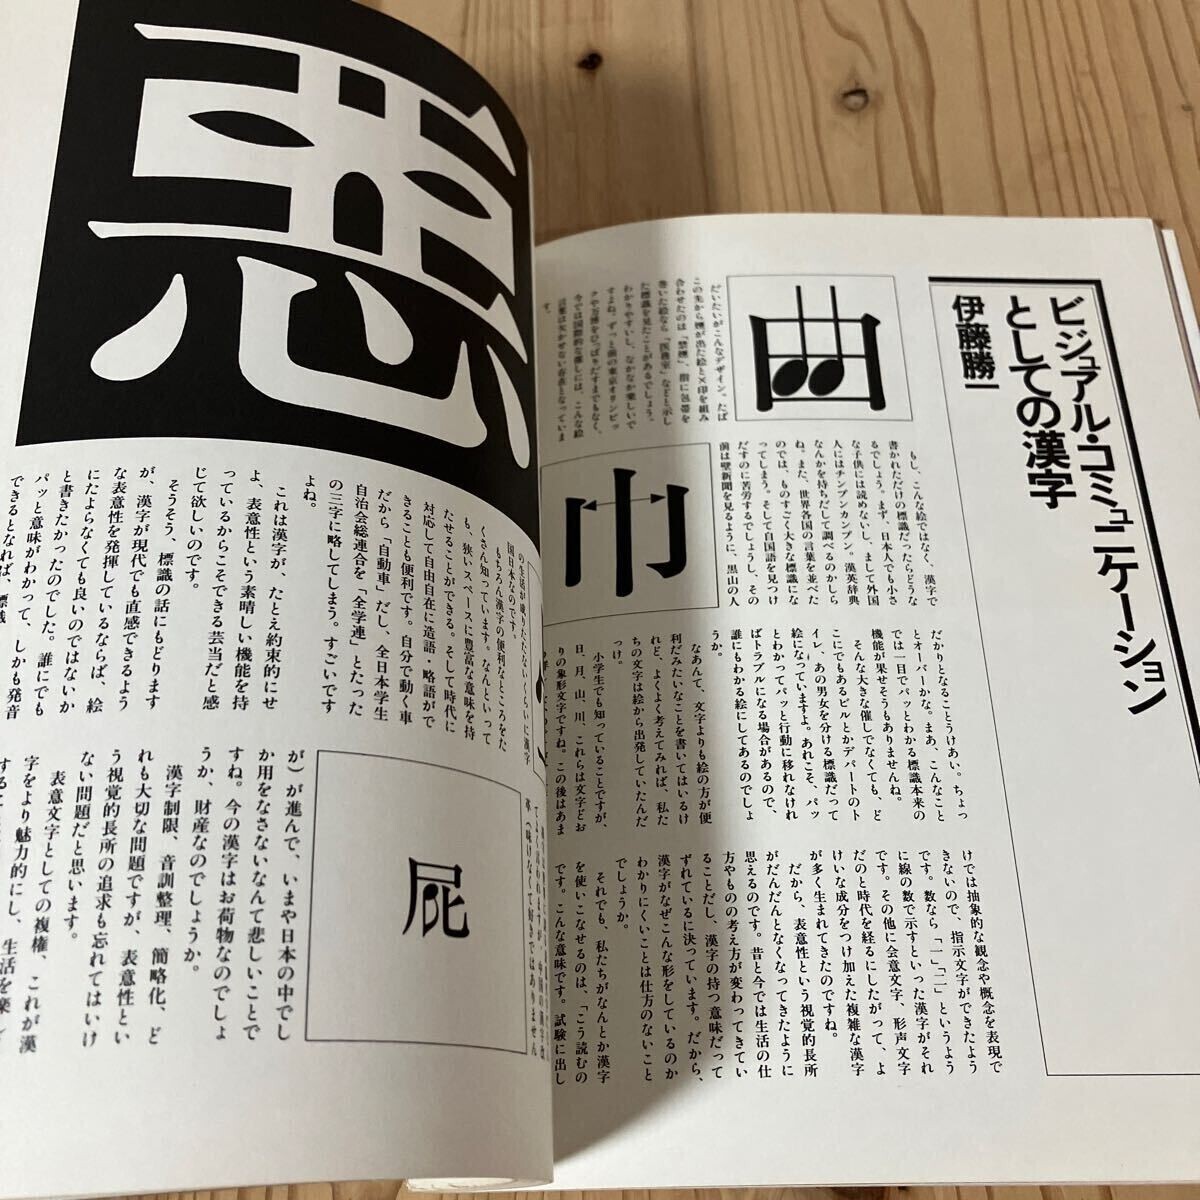 ビジュアル・コミュニケーション
としての漢字
伊藤勝一
曲
だいたいがこんなデザイン。たば
この先から煙が出た絵と×印を組み
合わせたのは「禁煙」、指に包帯を
巻いた絵なら「医務室」などと示し
た標識を見たことがあるでしょう。
わかりやすいし、なかなか楽しいで
すよね。ずっと前の東京オリンピッ
クや万博をひっぱりだすまでもなく、
今では国際的な催しには、こんな絵
言葉は欠かせない存在となっていま
す。
もし、こんな絵ではなく、漢字で
書かれただけの標識だったらどうな
るでしょう。まず、日本人でも小さ
な子供には読めないし、まして外国
人にはチンプンカンプン。漢英辞典
なんかを持ちだして調べるのかしら
ね。また、世界各国の言葉を並べた
のでは、ものすごく大きな標識にな
ってしまう。そして自国語を見つけ
だすのに苦労するでしょうし、その
前は壁新聞を見るように、黒山の人
巾
だかりとなることうけあい。ちょっ
とオーバーかな。まあ、こんなこと
では一目でパッとわかる標識本来の
機能が果せそうもありませんね。
そんな大きな催しでなくても、ど
こにでもあるビルとかデパートのト
イレ、あの男女を分ける標識だって
絵になっていますよ。あれこそ、パッ
とわかってパッと行動に移れなけれ
ばトラブルになる場合があるので、
誰にもわかる絵にしてあるのでしょ
うか。
なあんて、文字よりも絵の方が便
利だみたいなことを書いてはいるけ
れど、よくよく考えてみれば、私た
ちの文字は絵から出発していたんだ
っけ。
小学生でも知っていることですが、
日、月、山、川、これらは文字どお
りの象形文字ですね。この後はあま
けでは抽象的な観念や概念を表現で
きないので、指示文字ができたよう
です。数なら「一」「二」というよう
に線の数で示すといった漢字がそれ
です。その他に会意文字、形声文字
だのと時代を経るにしたがって、よ
けいな成分をつけ加えた複雑な漢字
が多く生まれてきたのですね。
だから、表意性という視覚的長所
がだんだんとなくなってきたように
思えるのです。昔と今では生活の仕
方やものの考え方が変わってきてい
ることだし、漢字の持つ意味だって
ずれているに決っています。だから、
漢字がなぜこんな形をしているのか
わかりにくいことは仕方のないこと
でしょうか。
それでも、私たちがなんとか漢字
を使いこなせるのは、「こう読むの
です。こんな意味です。試験に出し
悪
の生活が成りたたないくらいに漢字
国日本なのです。
もちろん漢字の便利なところをた
くさん知っています。なんといって
も、狭いスペースに豊富な意味を持
たせることができる。そして時代に
対応して自由自在に造語・略語がで
きることも便利です。自分で動く車
だから「自動車」だし、全日本学生
自治会総連合を「全学連」とたった
の三字に略してしまう。すごいです
よね。
これは漢字が、たとえ約束的にせ
よ、表意性という素晴しい機能を持
っているからこそできる芸当だと感
じて欲しいのです。
そうそう、標識の話にもどります
が、漢字が現代でも直感できるよう
な表意性を発揮しているならば、絵
にたよらなくても良いのではないか
と書きたかったのでした。誰にでも
パッと意味がわかって、しかも発音
できるとなれば、標識
屁
が）が進んで、いまや日本の中でし
か用をなさないなんて悲しいことで
すね。今の漢字はお荷物なのでしょ
うか、財産なのでしょうか。
漢字制限、音訓整理、簡略化、ど
れも大切な問題ですが、表意性とい
う視覚的長所の追求も忘れてはいけ
ない問題だと思います。
表意文字としての複権、これが漢
字をより魅力的にし、生活を楽し